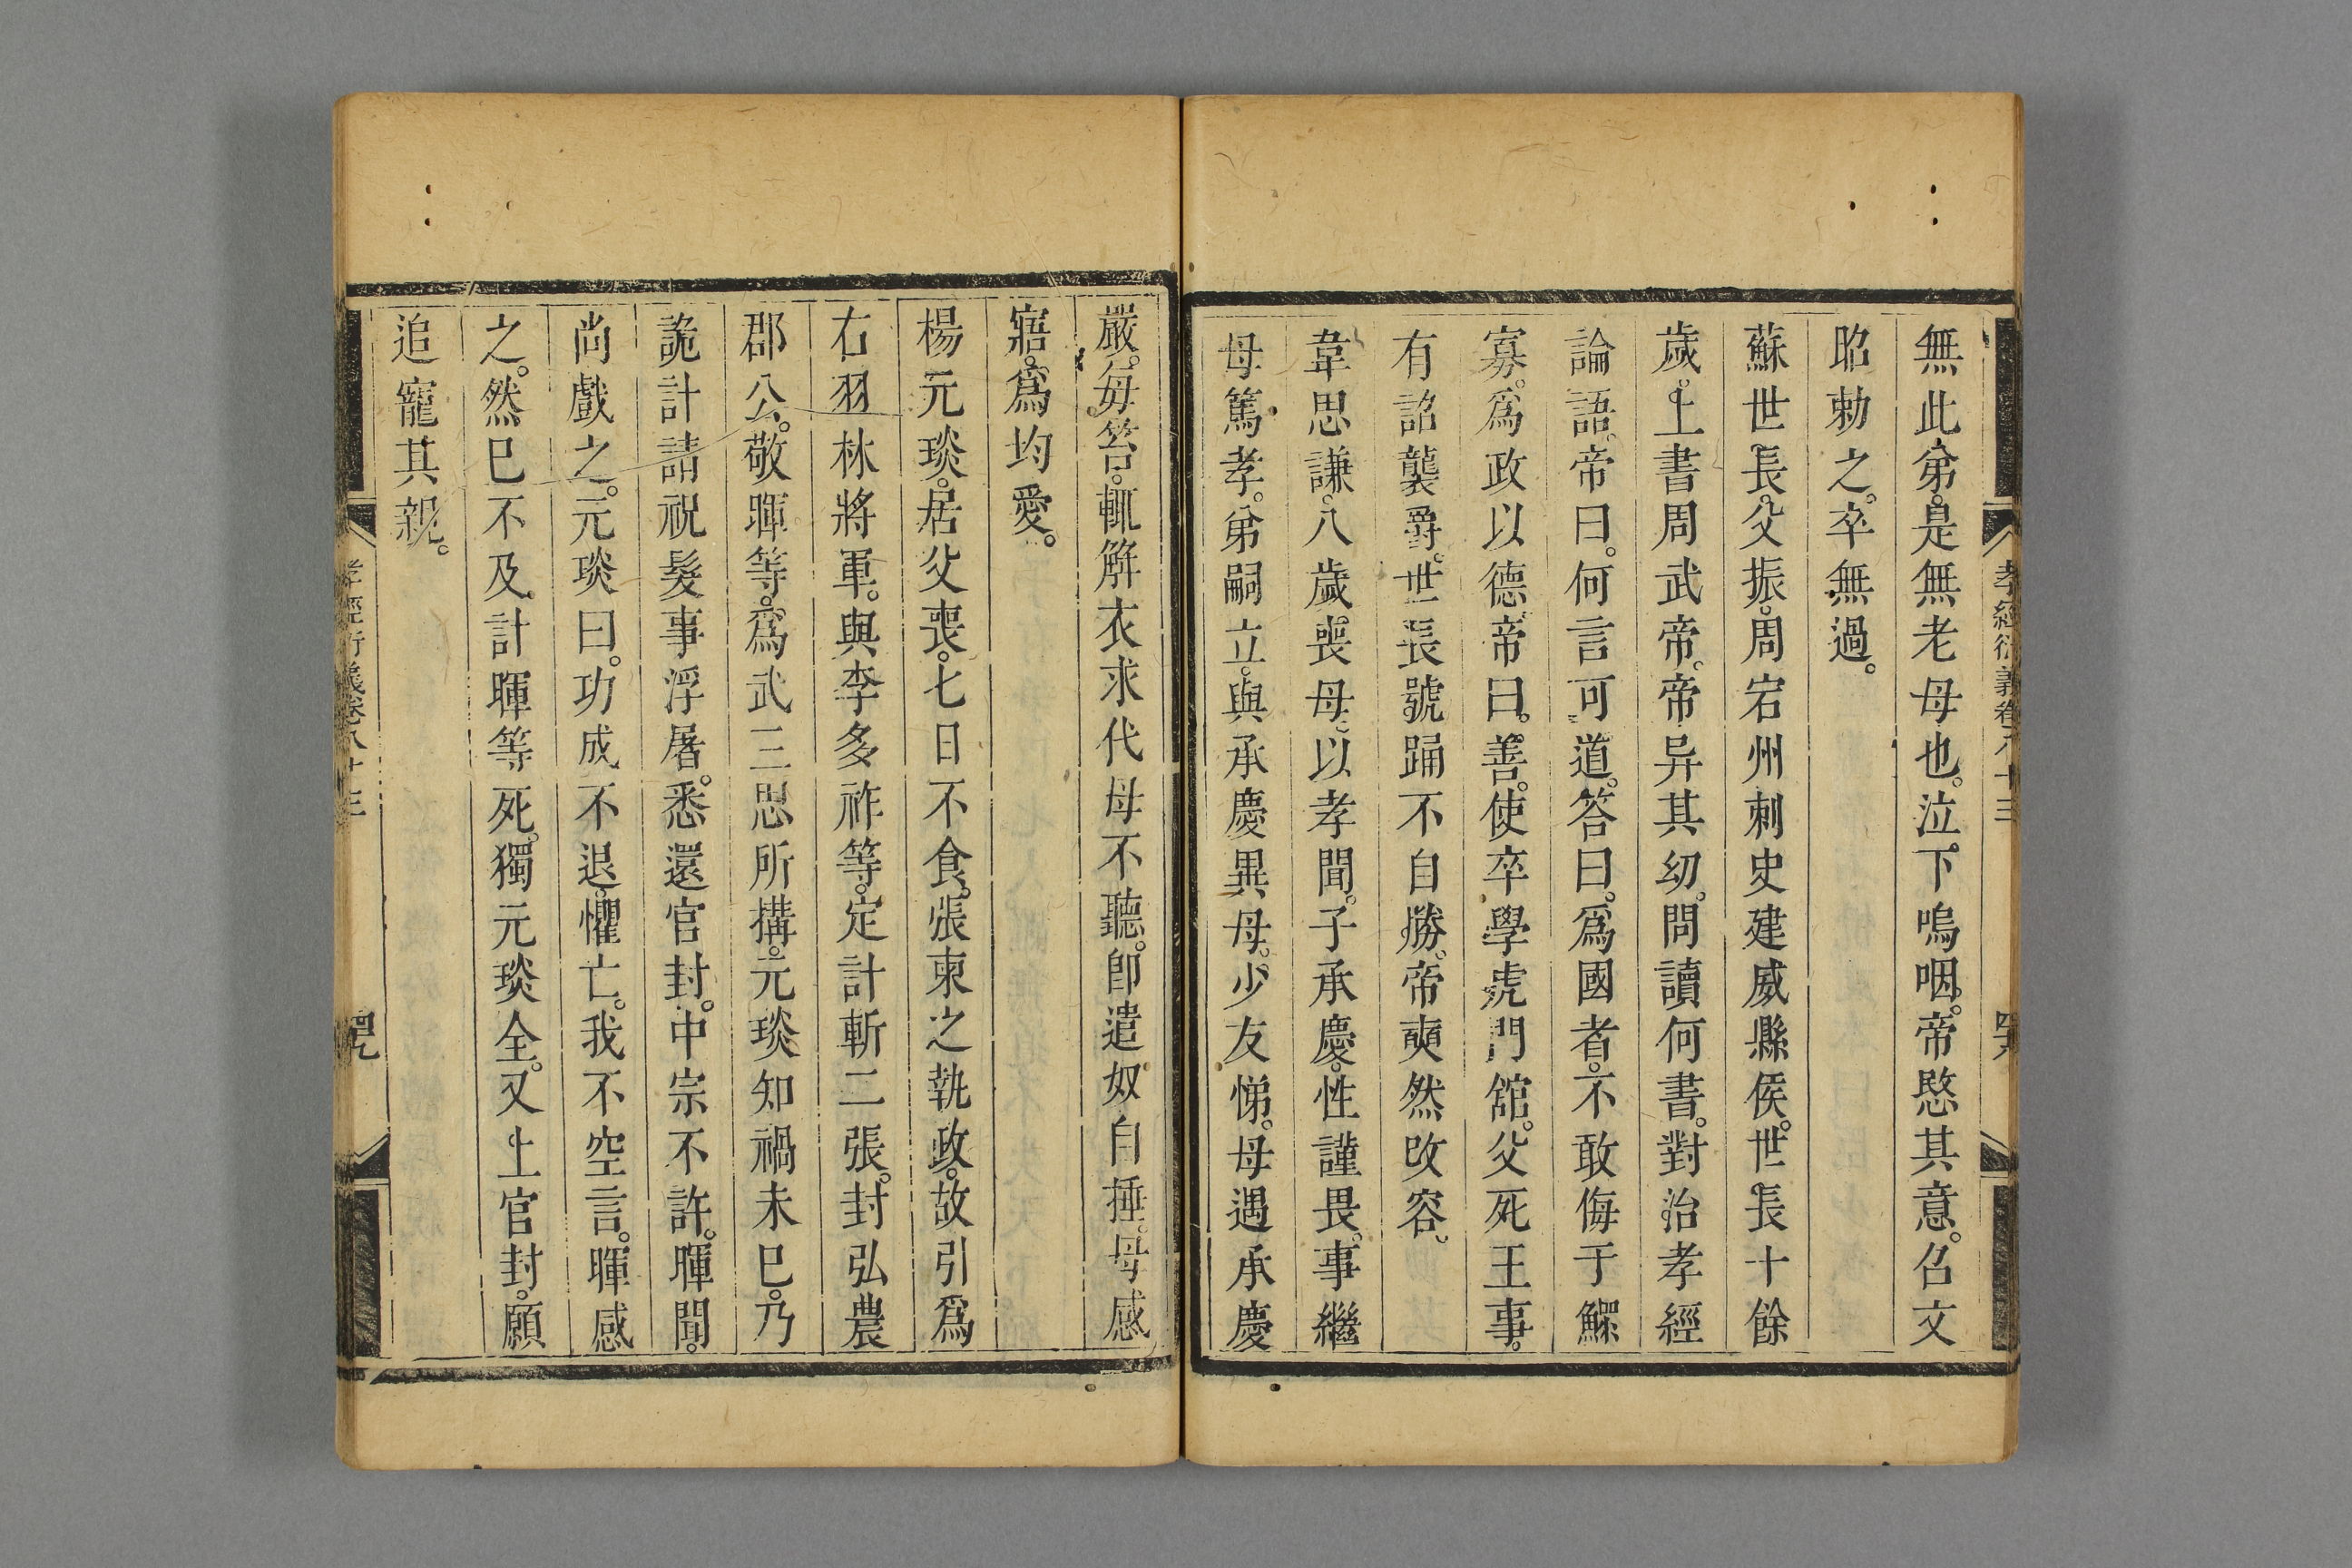 孝經衍義卷八十三
無此弟。是無老母也。泣下嗚咽。帝愍其意。召文
昭勅之。卒無過。
蘇世長。父振。周宕州刺史建威縣侯。世長十餘
歲。上書周武帝。帝异其幼。問讀何書。對治孝經
論語。帝曰。何言可道。答曰。爲國者。不敢侮于鰥
寡。爲政以德。帝曰。善。使卒學虎門舘。父死王事。
有詔襲爵。世長號踊不自勝。帝奭然改容。
韋思謙。八歲喪母。以孝聞。子承慶。性謹畏。事繼
母篤孝。弟嗣立。與承慶異母。少友悌。母遇承慶
嚴。每笞。輒解衣求代母不聽。卽遣奴自捶。母感
寤。爲均愛。
楊元琰。居父喪。七日不食。張柬之執政。故引爲
右羽林將軍。與李多祚等。定計斬二張。封弘農
郡公。敬暉等。爲武三思所搆。元琰知禍未已。乃
詭計請祝髮事浮屠。悉還官封。中宗不許。暉聞。
尚戲之。元琰曰。功成不退。懼亡。我不空言。暉感
之。然已不及計暉等死。獨元琰全。又上官封。願
追寵其親。
孝經衍義卷八十三